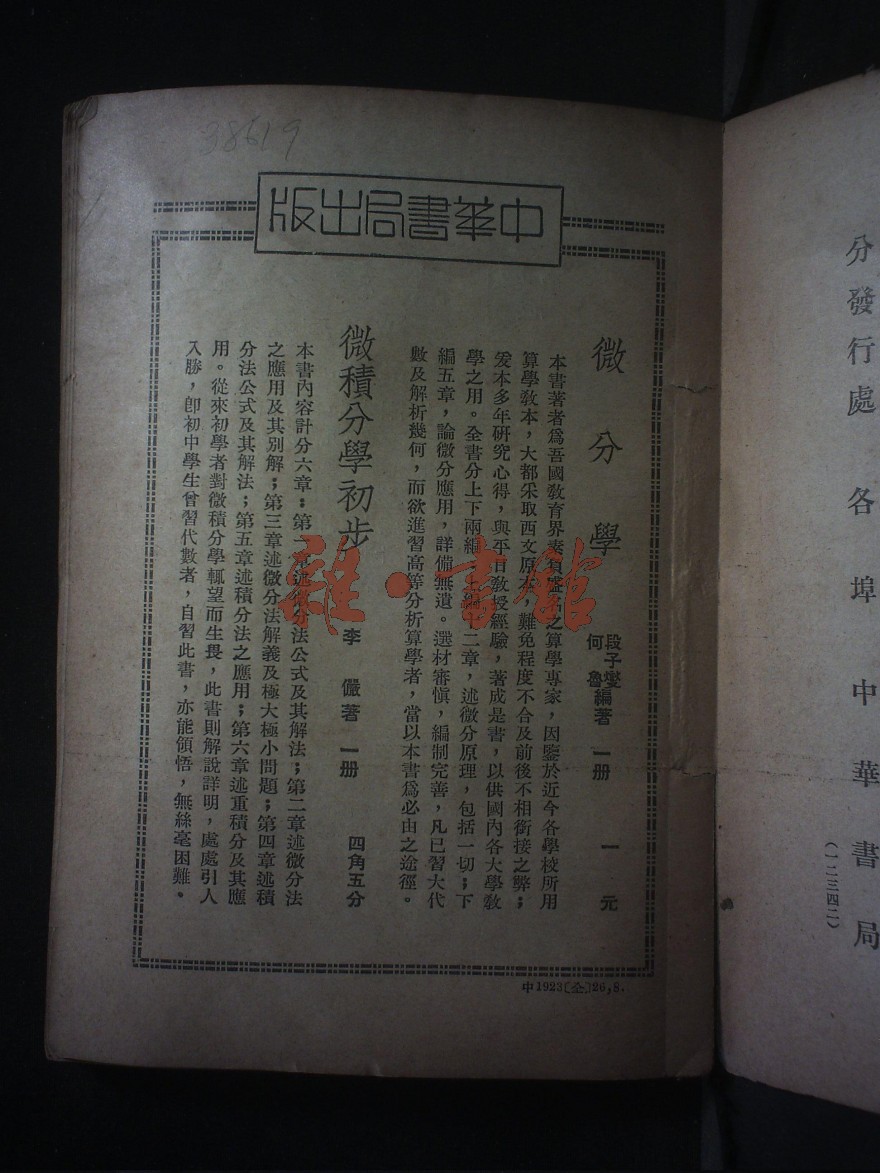 38619
中華書局出版
微分學
段子燮
何魯編著 一册 一元
本書著者爲吾國教育界素負盛名之算學專家，因鑒於近今各學校所用
算學教本，大都采取西文原本，難免程度不合及前後不相銜接之弊；
爰本多年研究心得，與平日教授經驗，著成是書，以供國內各大學教
學之用。全書分上下兩編：上編十二章，述微分原理，包括一切；下
編五章，論微分應用，詳備無遺。選材審愼，編制完善，凡已習大代
數及解析幾何，而欲進習高等分析算學者，當以本書爲必由之途徑。
微積分學初步
李儼著 一册 四角五分
本書內容計分六章：第一章述微分法公式及其解法；第二章述微分法
之應用及其別解；第三章述微分法解義及極大極小問題；第四章述積
分法公式及其解法；第五章述積分法之應用；第六章述重積分及其應
用。從來初學者對微積分學輒望而生畏，此書則解說詳明，處處引人
入勝，卽初中學生曾習代數者，自習此書，亦能領悟，無絲毫困難。
中1923〔仝〕26,8.
分發行處 各埠中華書局
(一二三四二)
雜·書館